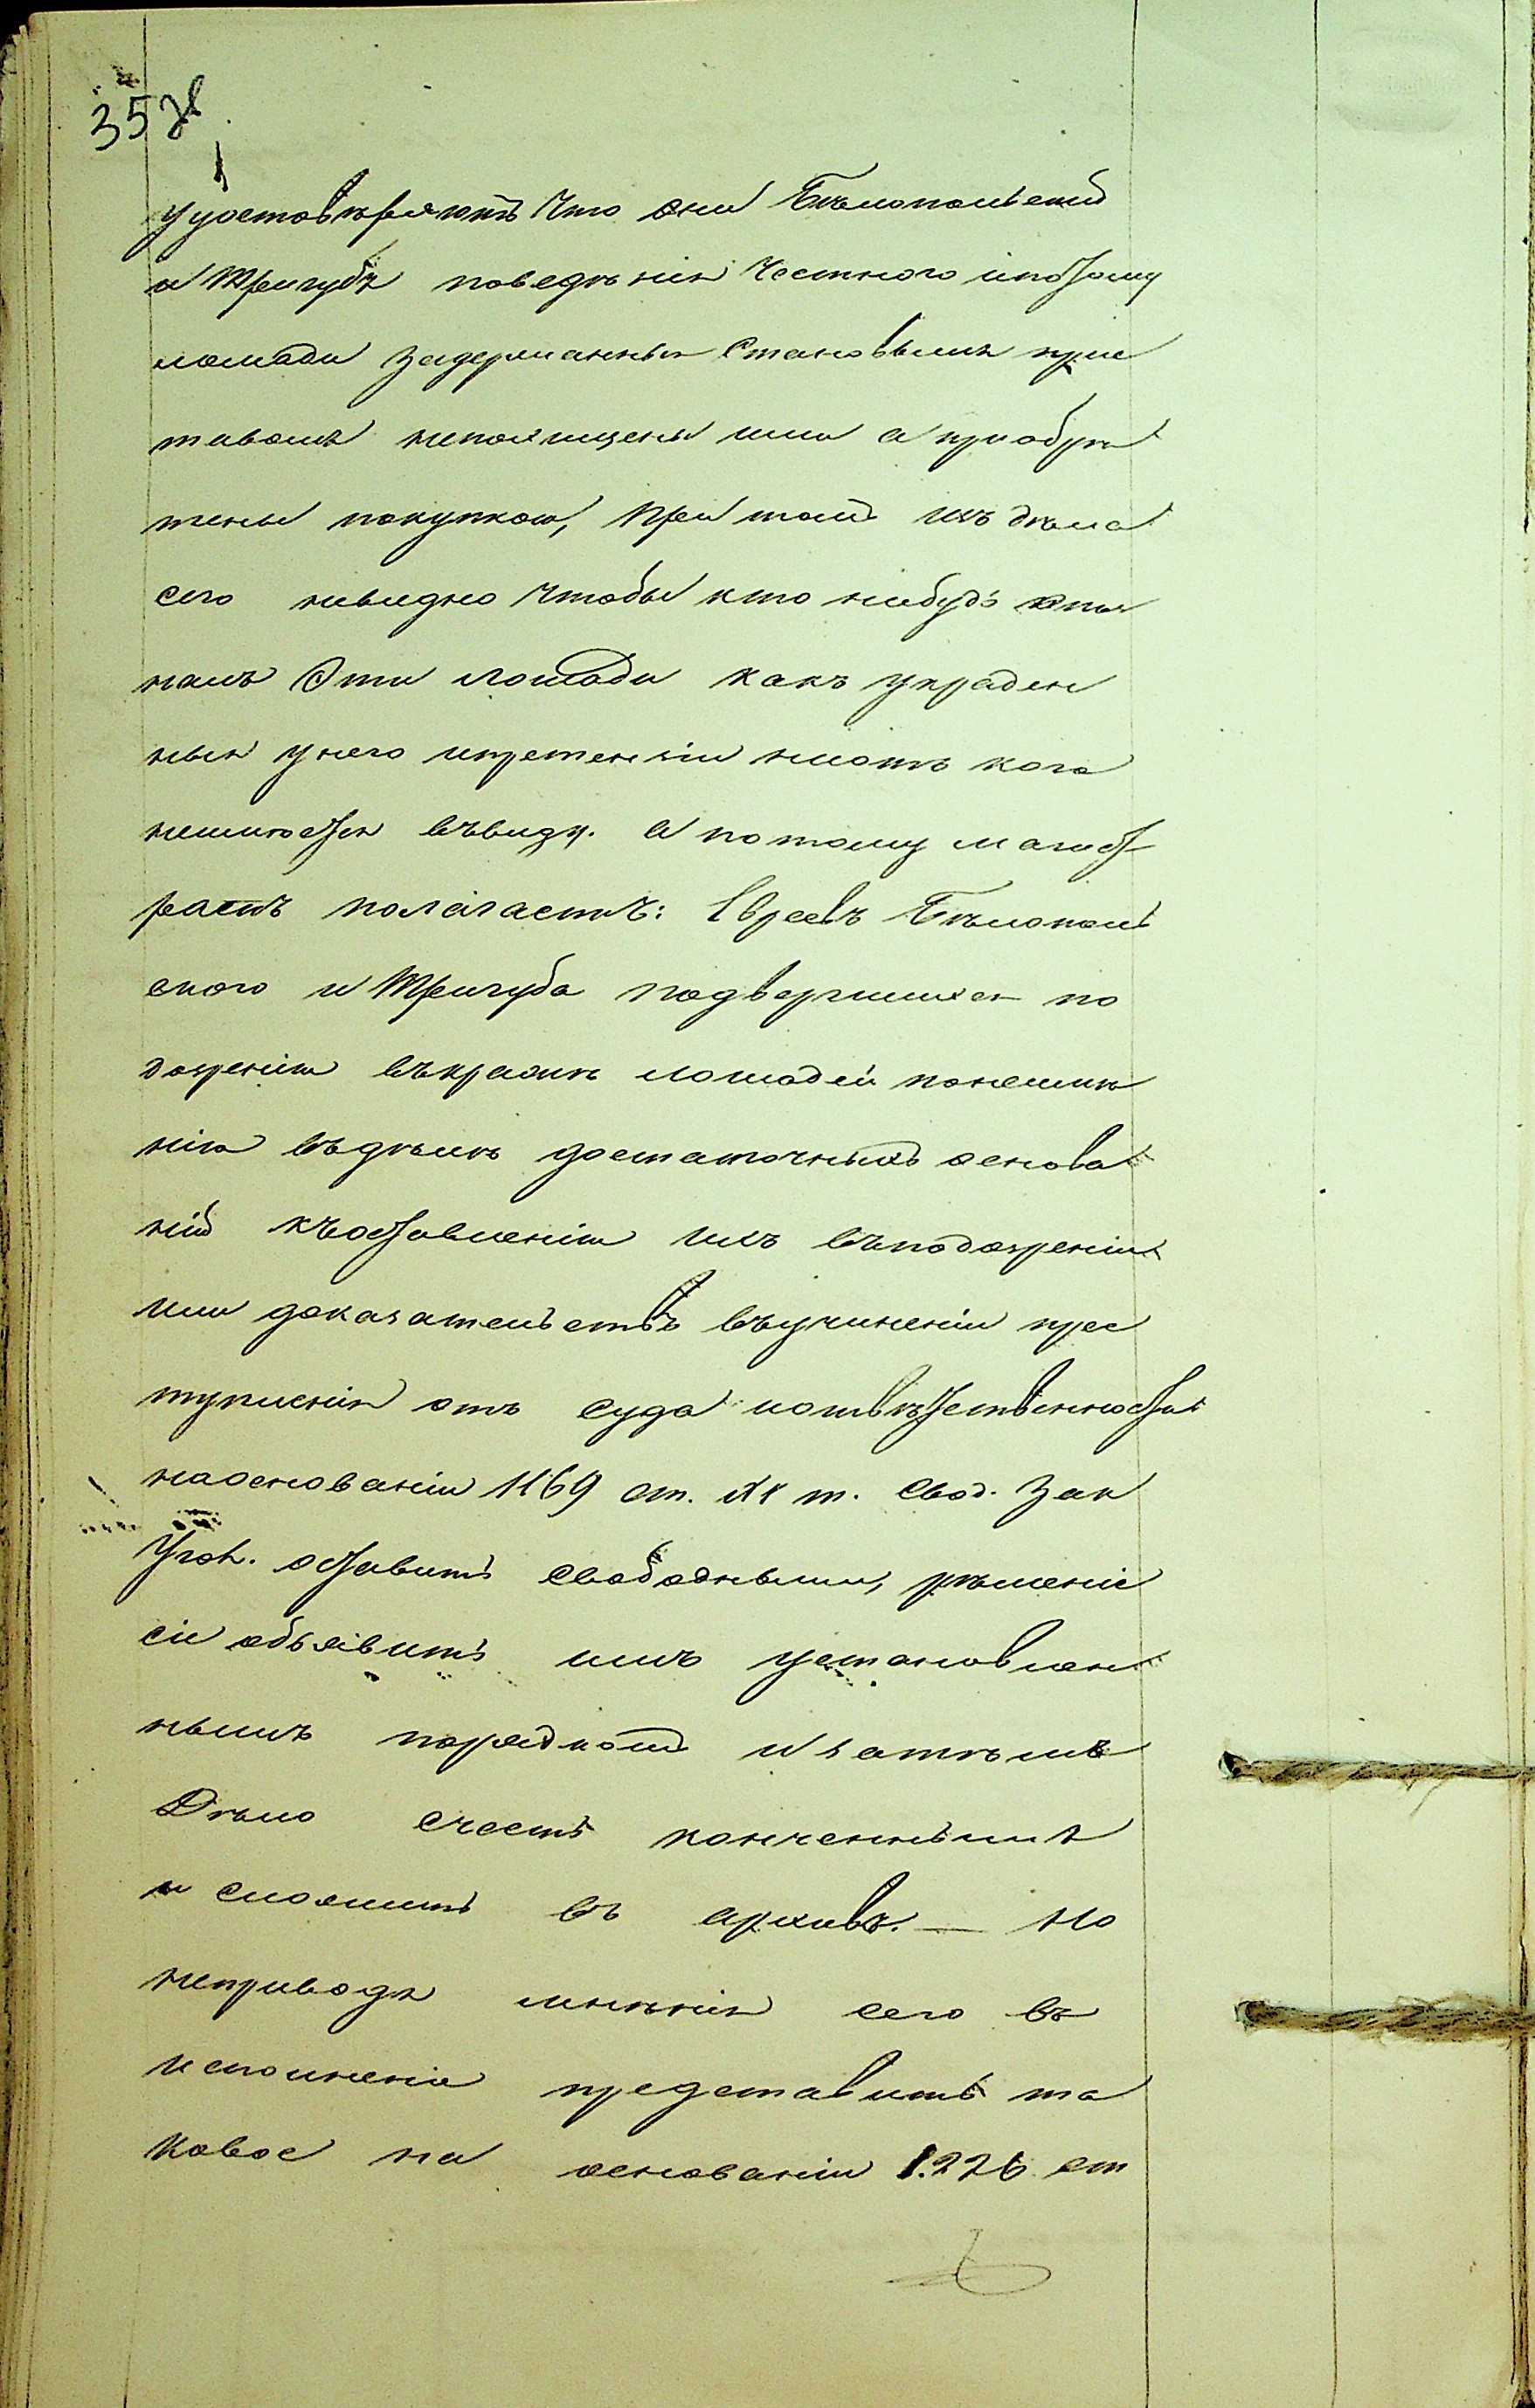 35 зв
удостовѣряютъ что они Бѣлопольскій
и Тригубъ поведѣнія честного ипотому
лошади задержанныя Становымъ прис
тавомъ непохищены ими а приобрѣ
тены покупкою, при томъ изъ дѣла
сего невидно чтобы кто нибудь опоз
налъ Эти лошади какъ украден
ныя унего ипретензіи ниотъ кого
неимѣется ввиду. А потому магист
ратъ полагаетъ: Евреевъ Бѣлополь
ского и Тригуба подвергшихся по
дозренію въкражѣ лошадей понеимѣ
нію въдѣлѣ достаточныхъ основа
ній къоставленію ихъ въподозреніи
или доказательствъ въучиненіи прес
тупленія отъ суда иответственности
наоснованіи 1169 ст. XV т. Свод. Зак
Угол. оставить свободными, рѣшеніе
сіе объявить имъ установлен
нымъ порядкомъ и затѣмъ
Дѣло счесть конченнымъ
и сложить въ архивъ. — Но
неприводя мнѣнія сего въ
исполненіе представить та
ковое на основаніи 1.226 ст